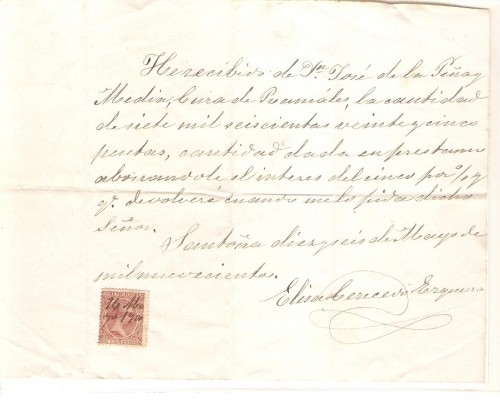 He recibido de Dn José de la Peña y
Media, Cura de Ramáles, la cantidad
de siete mil seiscientas veinte y cinco
pesetas, cantidad dada en prestamo
abonandole el interes del cinco por % y
qe. devolveré cuando me lo pida dicho
Señor.
Santoña diez y seis de Mayo de
mil nuevecientos.
Elisa Cerecedo Ezquerra
16 Mayo
1900